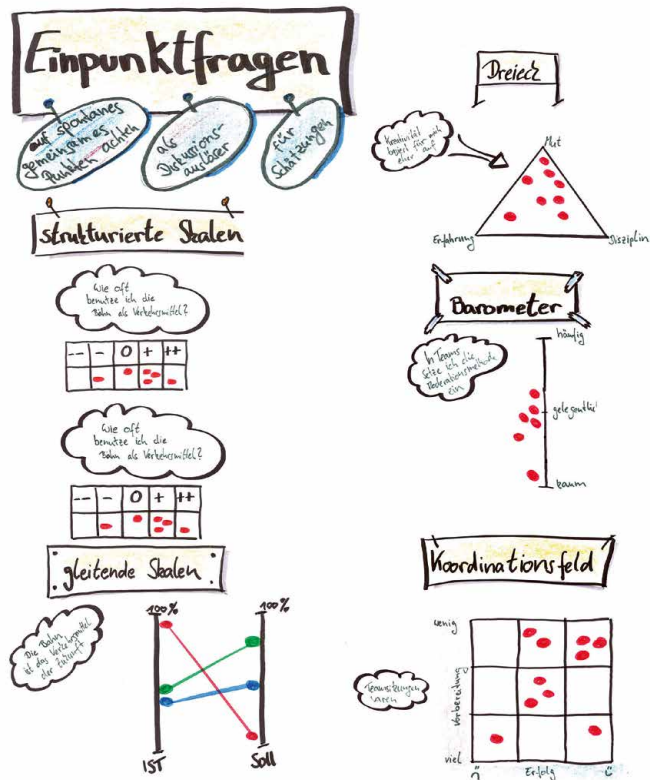 Einpunktfragen
auf spontanes
gemeinsames
Punkten achten
als
Diskussions-
auslöser
für
Schätzungen
strukturierte Skalen
Wie oft
benutze ich die
Bahn als Verkehrsmittel?
-- - 0 + ++
Wie oft
benutze ich die
Bahn als Verkehrsmittel?
-- - 0 + ++
gleitende Skalen
Die Bahn
ist das Verkehrsmittel
der Zukunft
100% 100%
IST Soll
Dreieck
Kreativität
für mich
eher auf
Mut
Erfahrung Disziplin
Barometer
In Teams
setze ich die
Moderationsmethode
ein
häufig
gelegentlich
kaum
Koordinationsfeld
Teamsitzungen
waren
wenig
Vorbereitung
viel
Erfolg